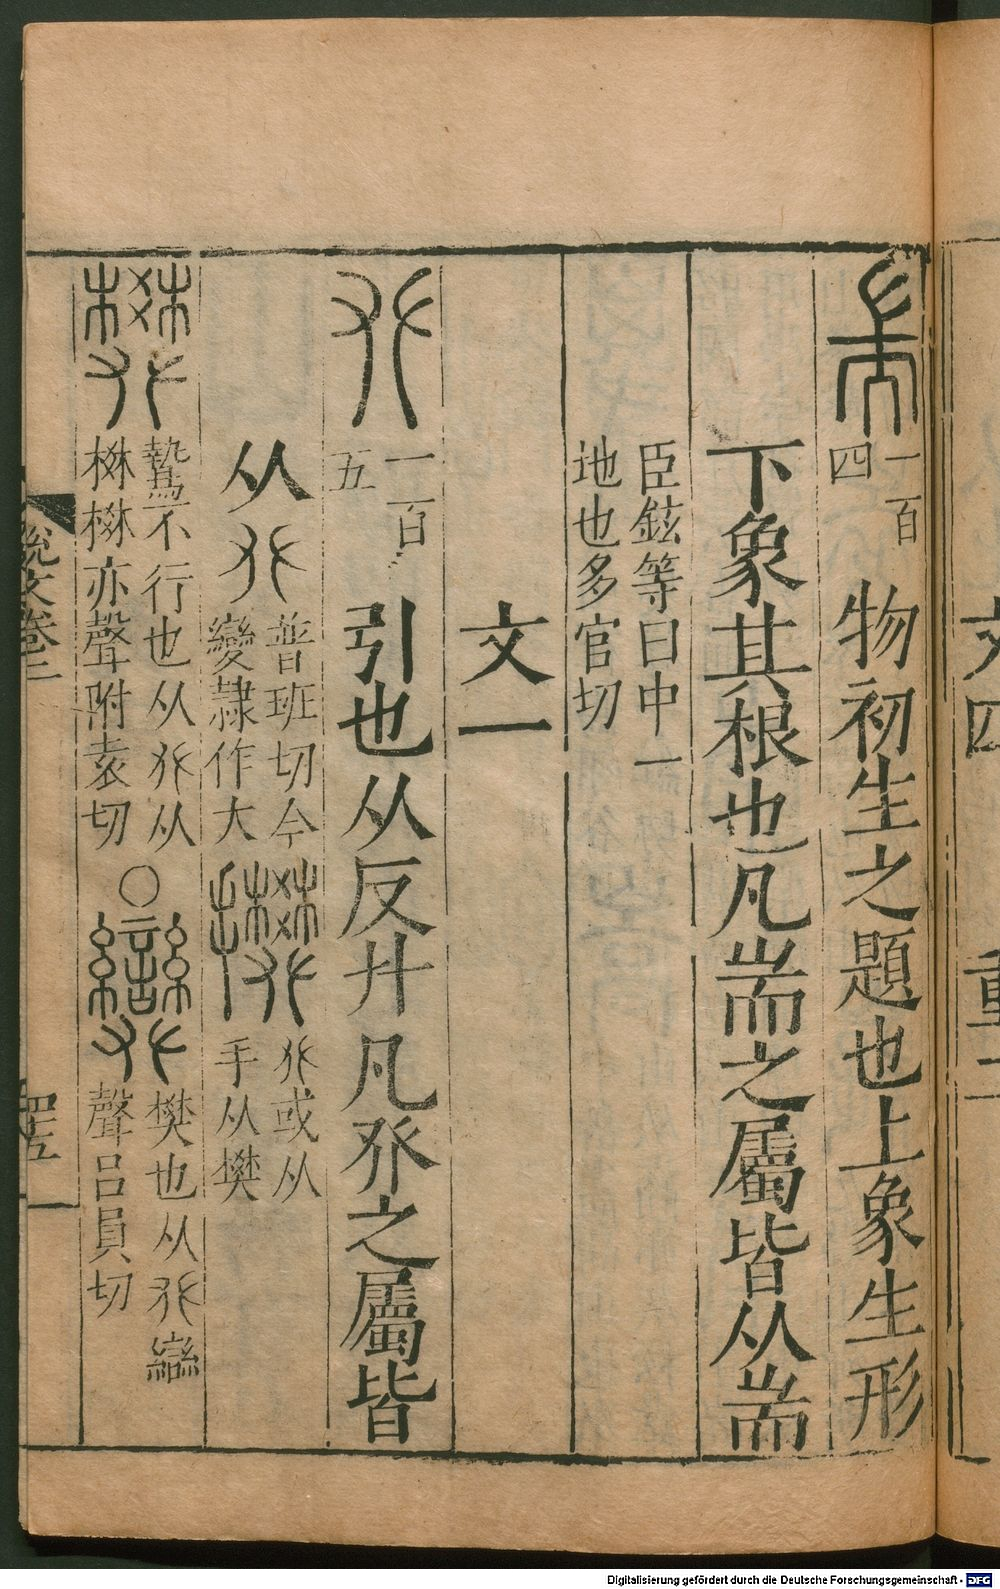 耑 一百四 物初生之題也上象生形
下象其根也凡耑之屬皆从耑
臣鉉等曰中一
地也多官切
文一
𠬜 一百五 引也从反廾凡𠬜之屬皆
从𠬜 普班切今
變隷作大
𠬜或从
手从樊
樊 騺不行也从𠬜从
棥棥亦聲附袁切
○
樊也从𠬜䜌
聲呂員切
說文卷三
四十五
文四 重二
Digitalisierung gefördert durch die Deutsche Forschungsgemeinschaft - DFG